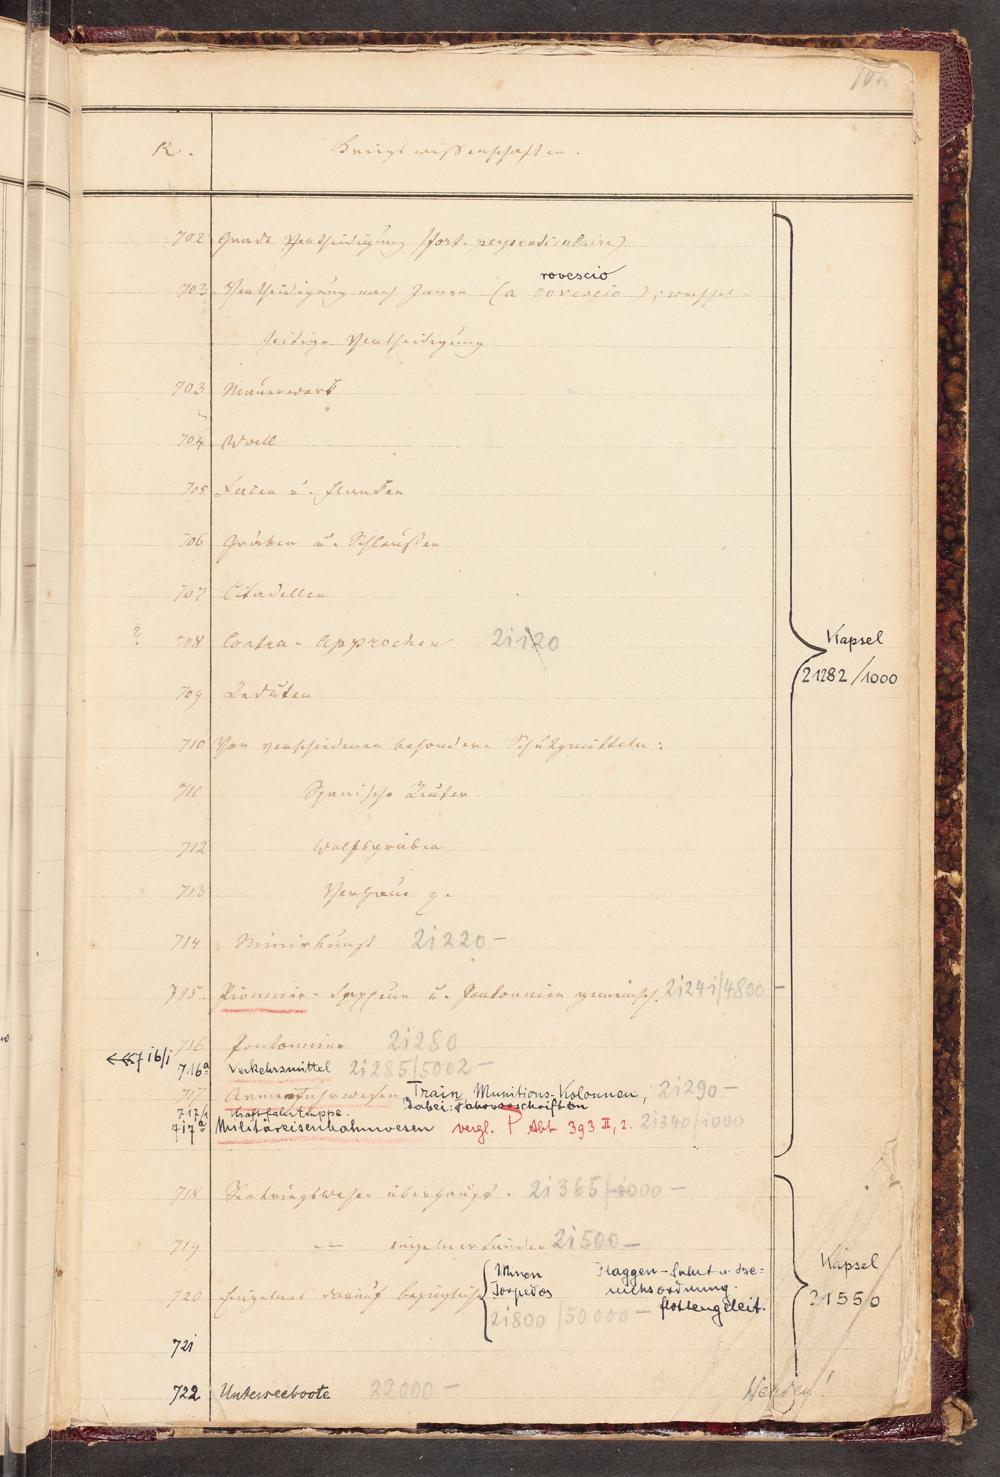 R. Kriegswissenschaften.
702 Grade Vertheidigung (fort. perpendiculaire)
rovescio
703 Vertheidigung nach Innen (a rovescio), wechsel-
seitige Vertheidigung
703 Mauerwerk
704 Wall
705 Facen u. Flanken
706 Gräben u. Schleußen
707 Citadellen
? 708 Contra-Approchen 21120
709 Reduten
Kapsel
21282/1000
710 Von verschiedenen besonderen Schutzmitteln:
711 Spanische Reuter
712 Wolfsgruben
713 Verhaue
714 Minirkunst 21220 –
715. Pionnier- Sappeur u. Pontonnier gemeinsch. 21241/4800 –
716 Pontonnier 21280
716/1
716a Verkehrsmittel 21285/5002 –
717 Armeefuhrwesen Train, Munitions-Kolonnen, 21290 –
717/1 Kraftfahrtruppe. Dabei: Fahrvorschriften
717a Militäreisenbahnwesen vergl. P Abt 393 II, 2. 21340/1000
718 Seekriegswesen überhaupt. 21365/1000 –
719 — einzelner Länder 21500 –
720 Einzelnes darauf bezügliche
Minen
Torpedos
21800/50000 –
Flaggen-Salut u.
flottengeleit.
Kapsel
21550
721
722 Unterseeboote 22000 –
Wenden!